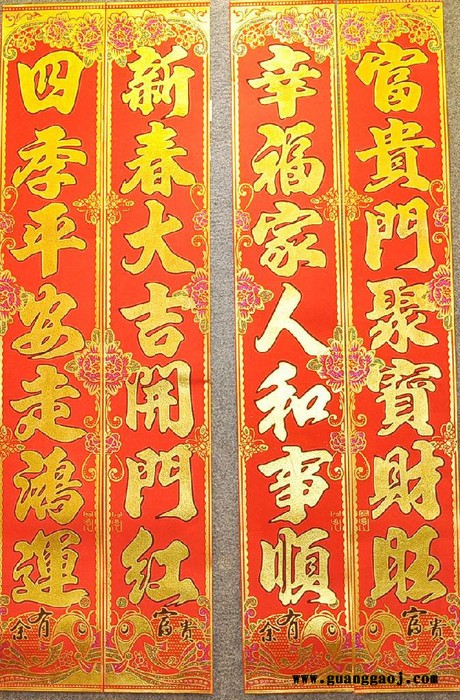 富貴門聚寶財旺
富贵
幸福家人和事順
有余
新春大吉開門紅
富贵
四季平安走鴻運
有余
www.guanggaoj.com